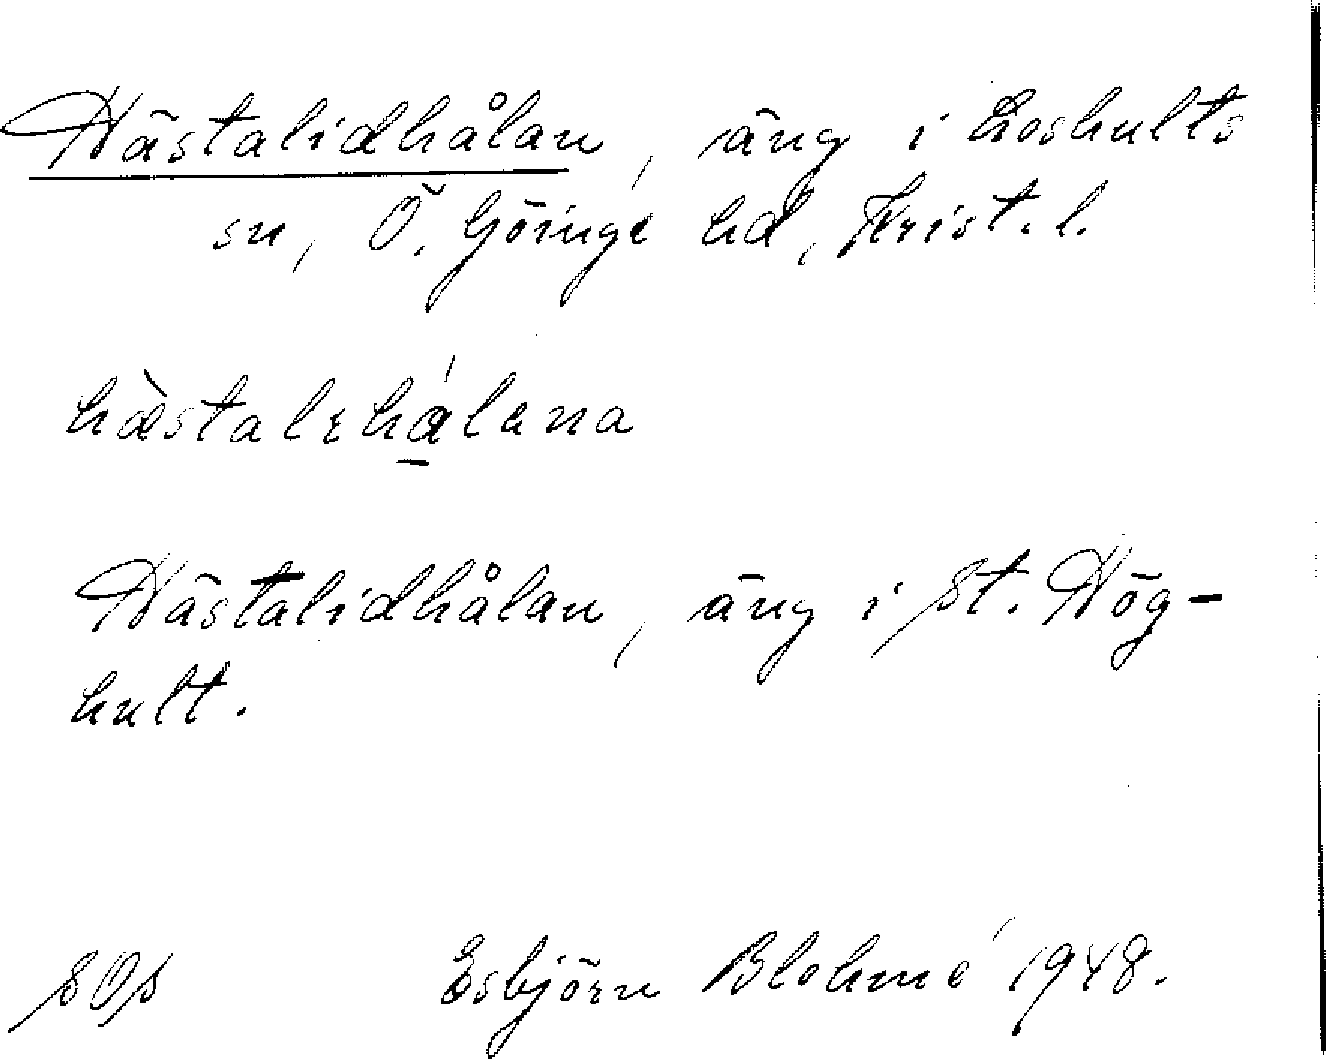 Hästalidhålan, äng i Loshults
sn, Ö. Göinge hd, Krist. l.
hæ̀stalehá̱lena
Hästalidhålan, äng i St. Hög-
hult.
SOS Esbjörn Blohmé 1948.